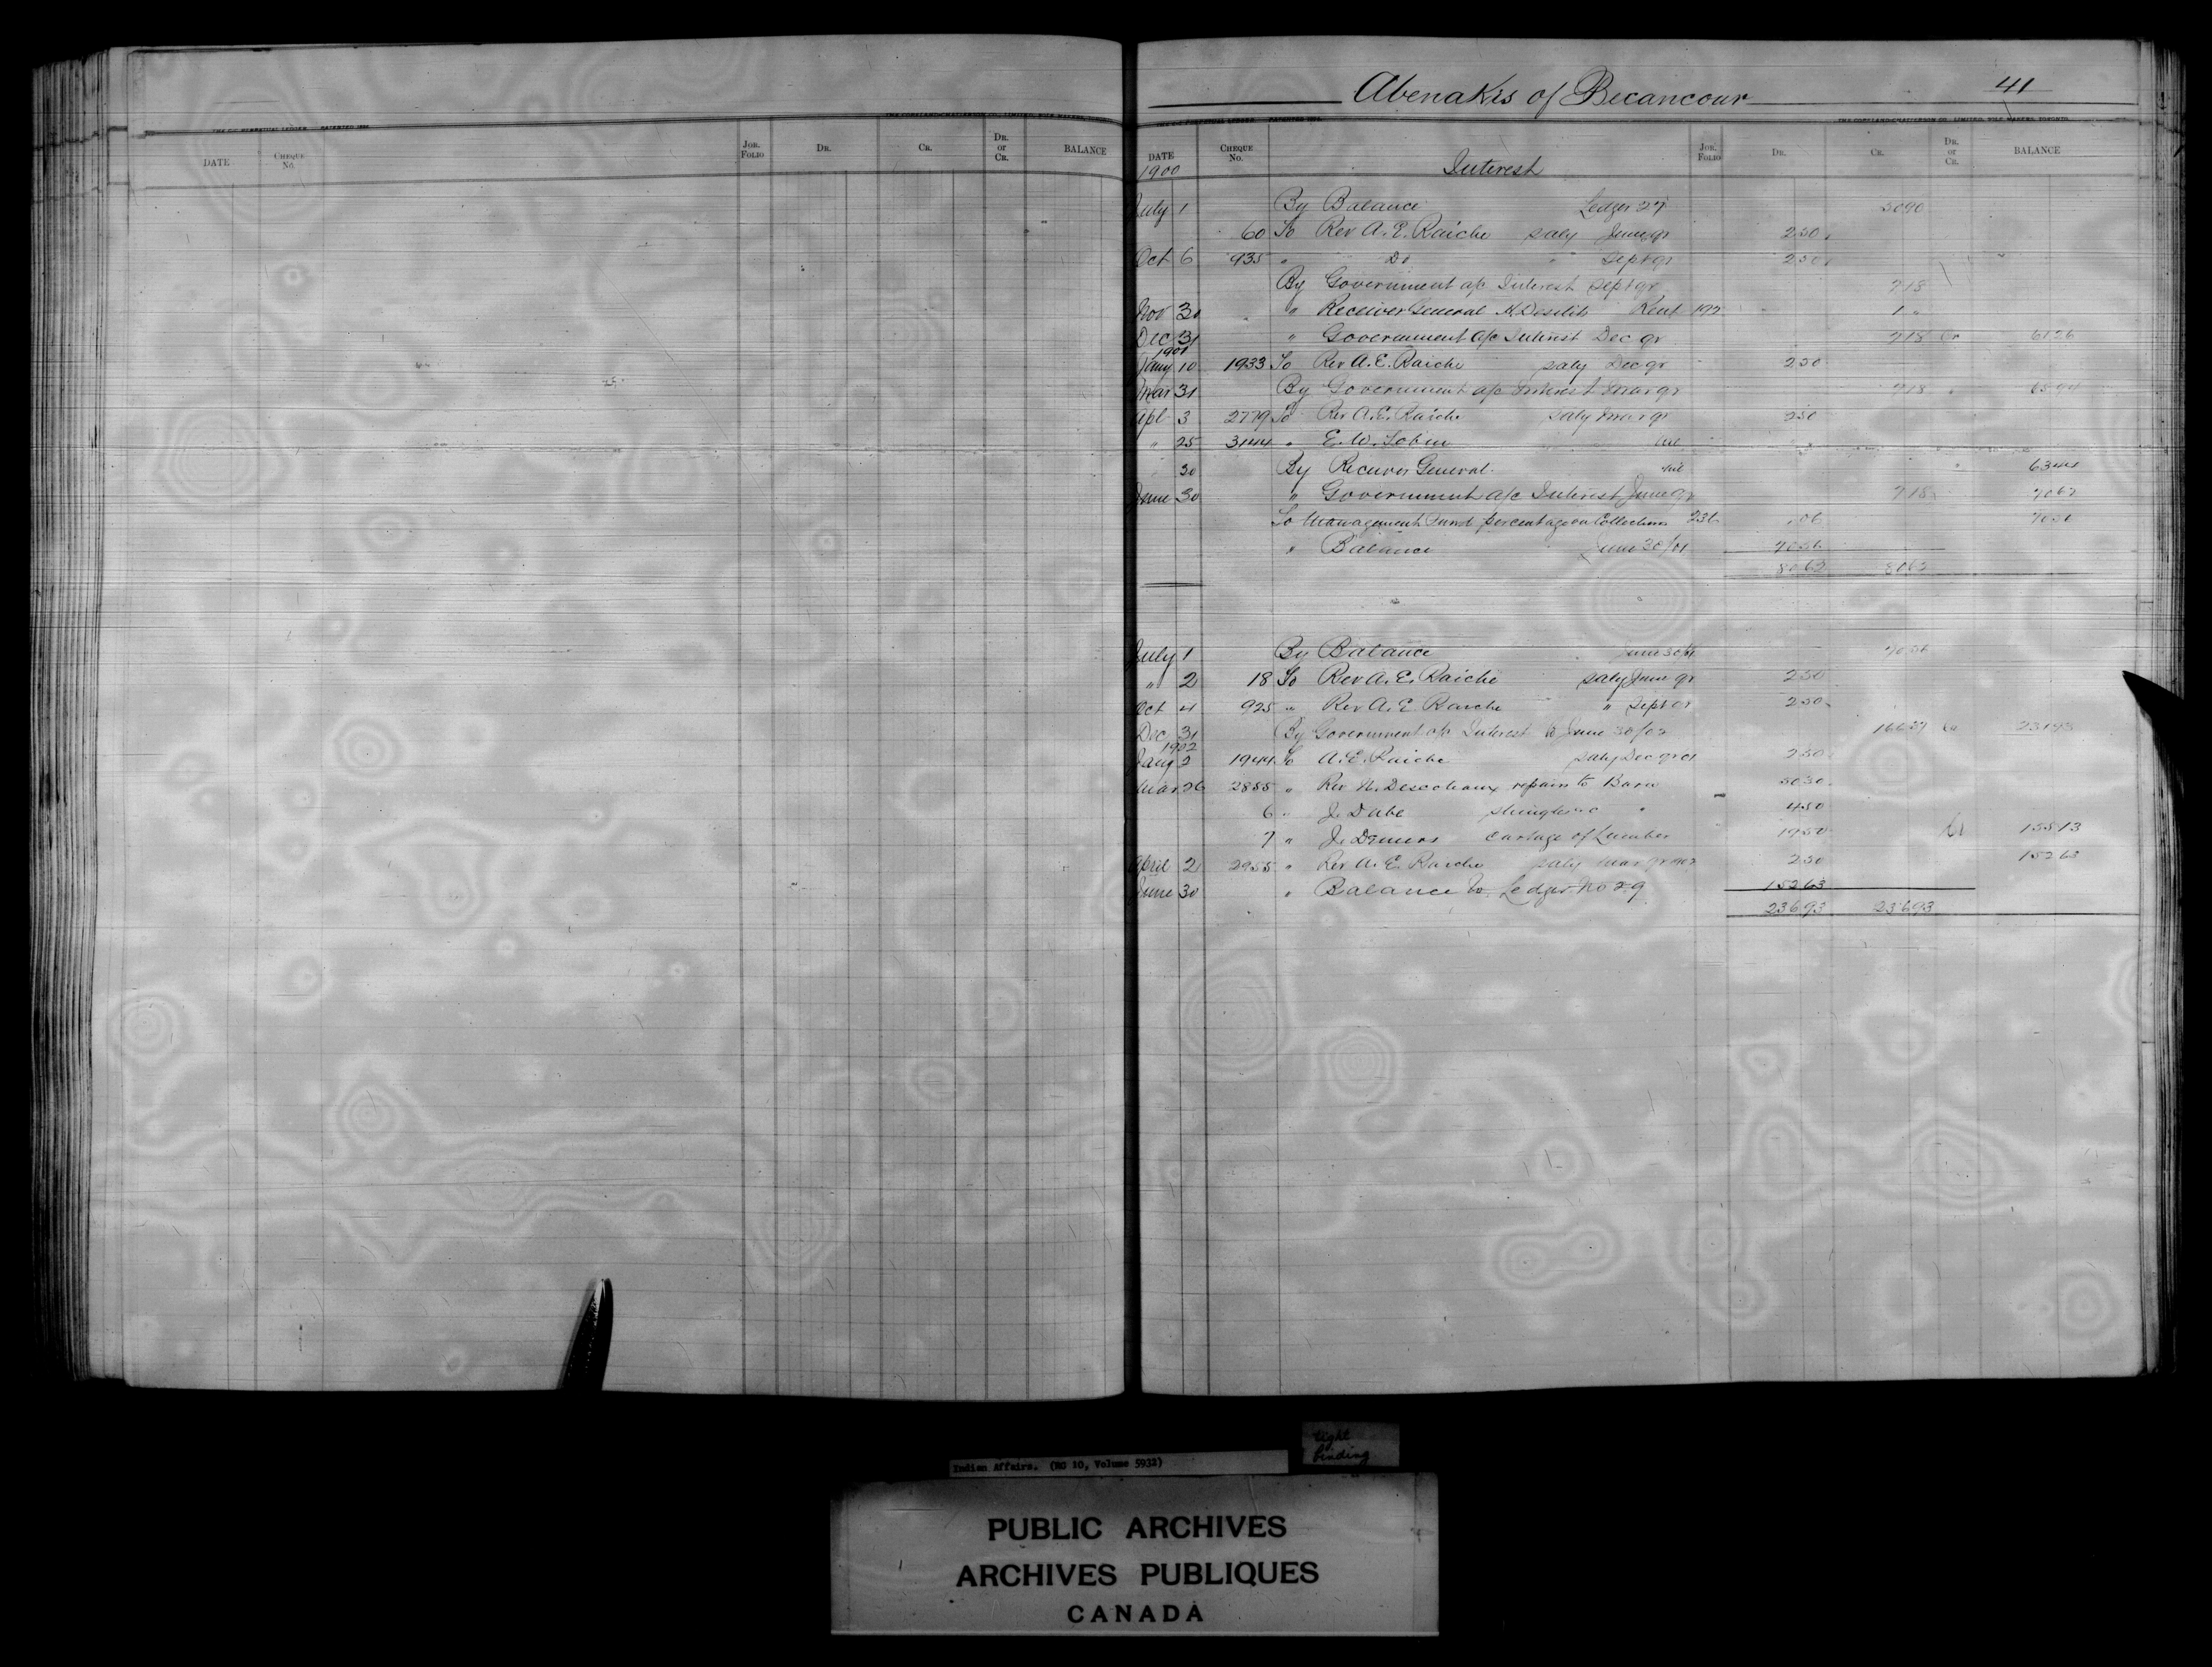 Abenakis of Becancour 41
DATE CHEQUE No. JOR. FOLIO DR. CR. DR. or CR. BALANCE
DATE CHEQUE No. JOR. FOLIO DR. CR. DR. or CR. BALANCE
1900 Interest
July 1 By Balance Ledger 27 5090
60 To Rev A. E. Raiche saly June qr 250
Oct 6 935 " Do " Sept qr 250
By Government a/c Interest Sept qr 718
Nov 30 " Receiver General Rent 192 1 "
Dec 31 " Government a/c Interest Dec qr 718 Cr 6126
1901
Jany 10 1933 To Rev A. E. Raiche saly Dec qr 250
Mar 31 By Government a/c Interest Mar qr 718 " 6594
Apl 3 2779 To Rev A. E. Raiche saly Mar qr 250
" 25 3144 " E. W.
30 By Receiver General 6344
June 30 " Government a/c Interest June qr 718 7062
To Management Fund percentage on Collections 236 06 7056
" Balance June 30/01 7056
8062 8062
July 1 By Balance June 30/01 7056
" 2 18 To Rev A. E. Raiche saly June qr 250
Oct 4 925 " Rev A. E. Raiche " Sept qr 250
Dec 31 By Government a/c Interest to June 30/02 16637 Cr 23193
1902
Jany 2 1944 To A. E. Raiche saly Dec qr 01 250
Mar 26 2855 " Rev repairs to Barn 5030
6 " J. Dube shingles &c " 450
7 " J. Demers Cartage of Lumber 1950 Cr 15513
April 2 2955 " Rev A. E. Raiche saly Mar qr 902 250 15263
June 30 " Balance to Ledger No 29 15263
23693 23693
tight
binding
Indian Affairs. (RG 10, Volume 5932)
PUBLIC ARCHIVES
ARCHIVES PUBLIQUES
CANADA